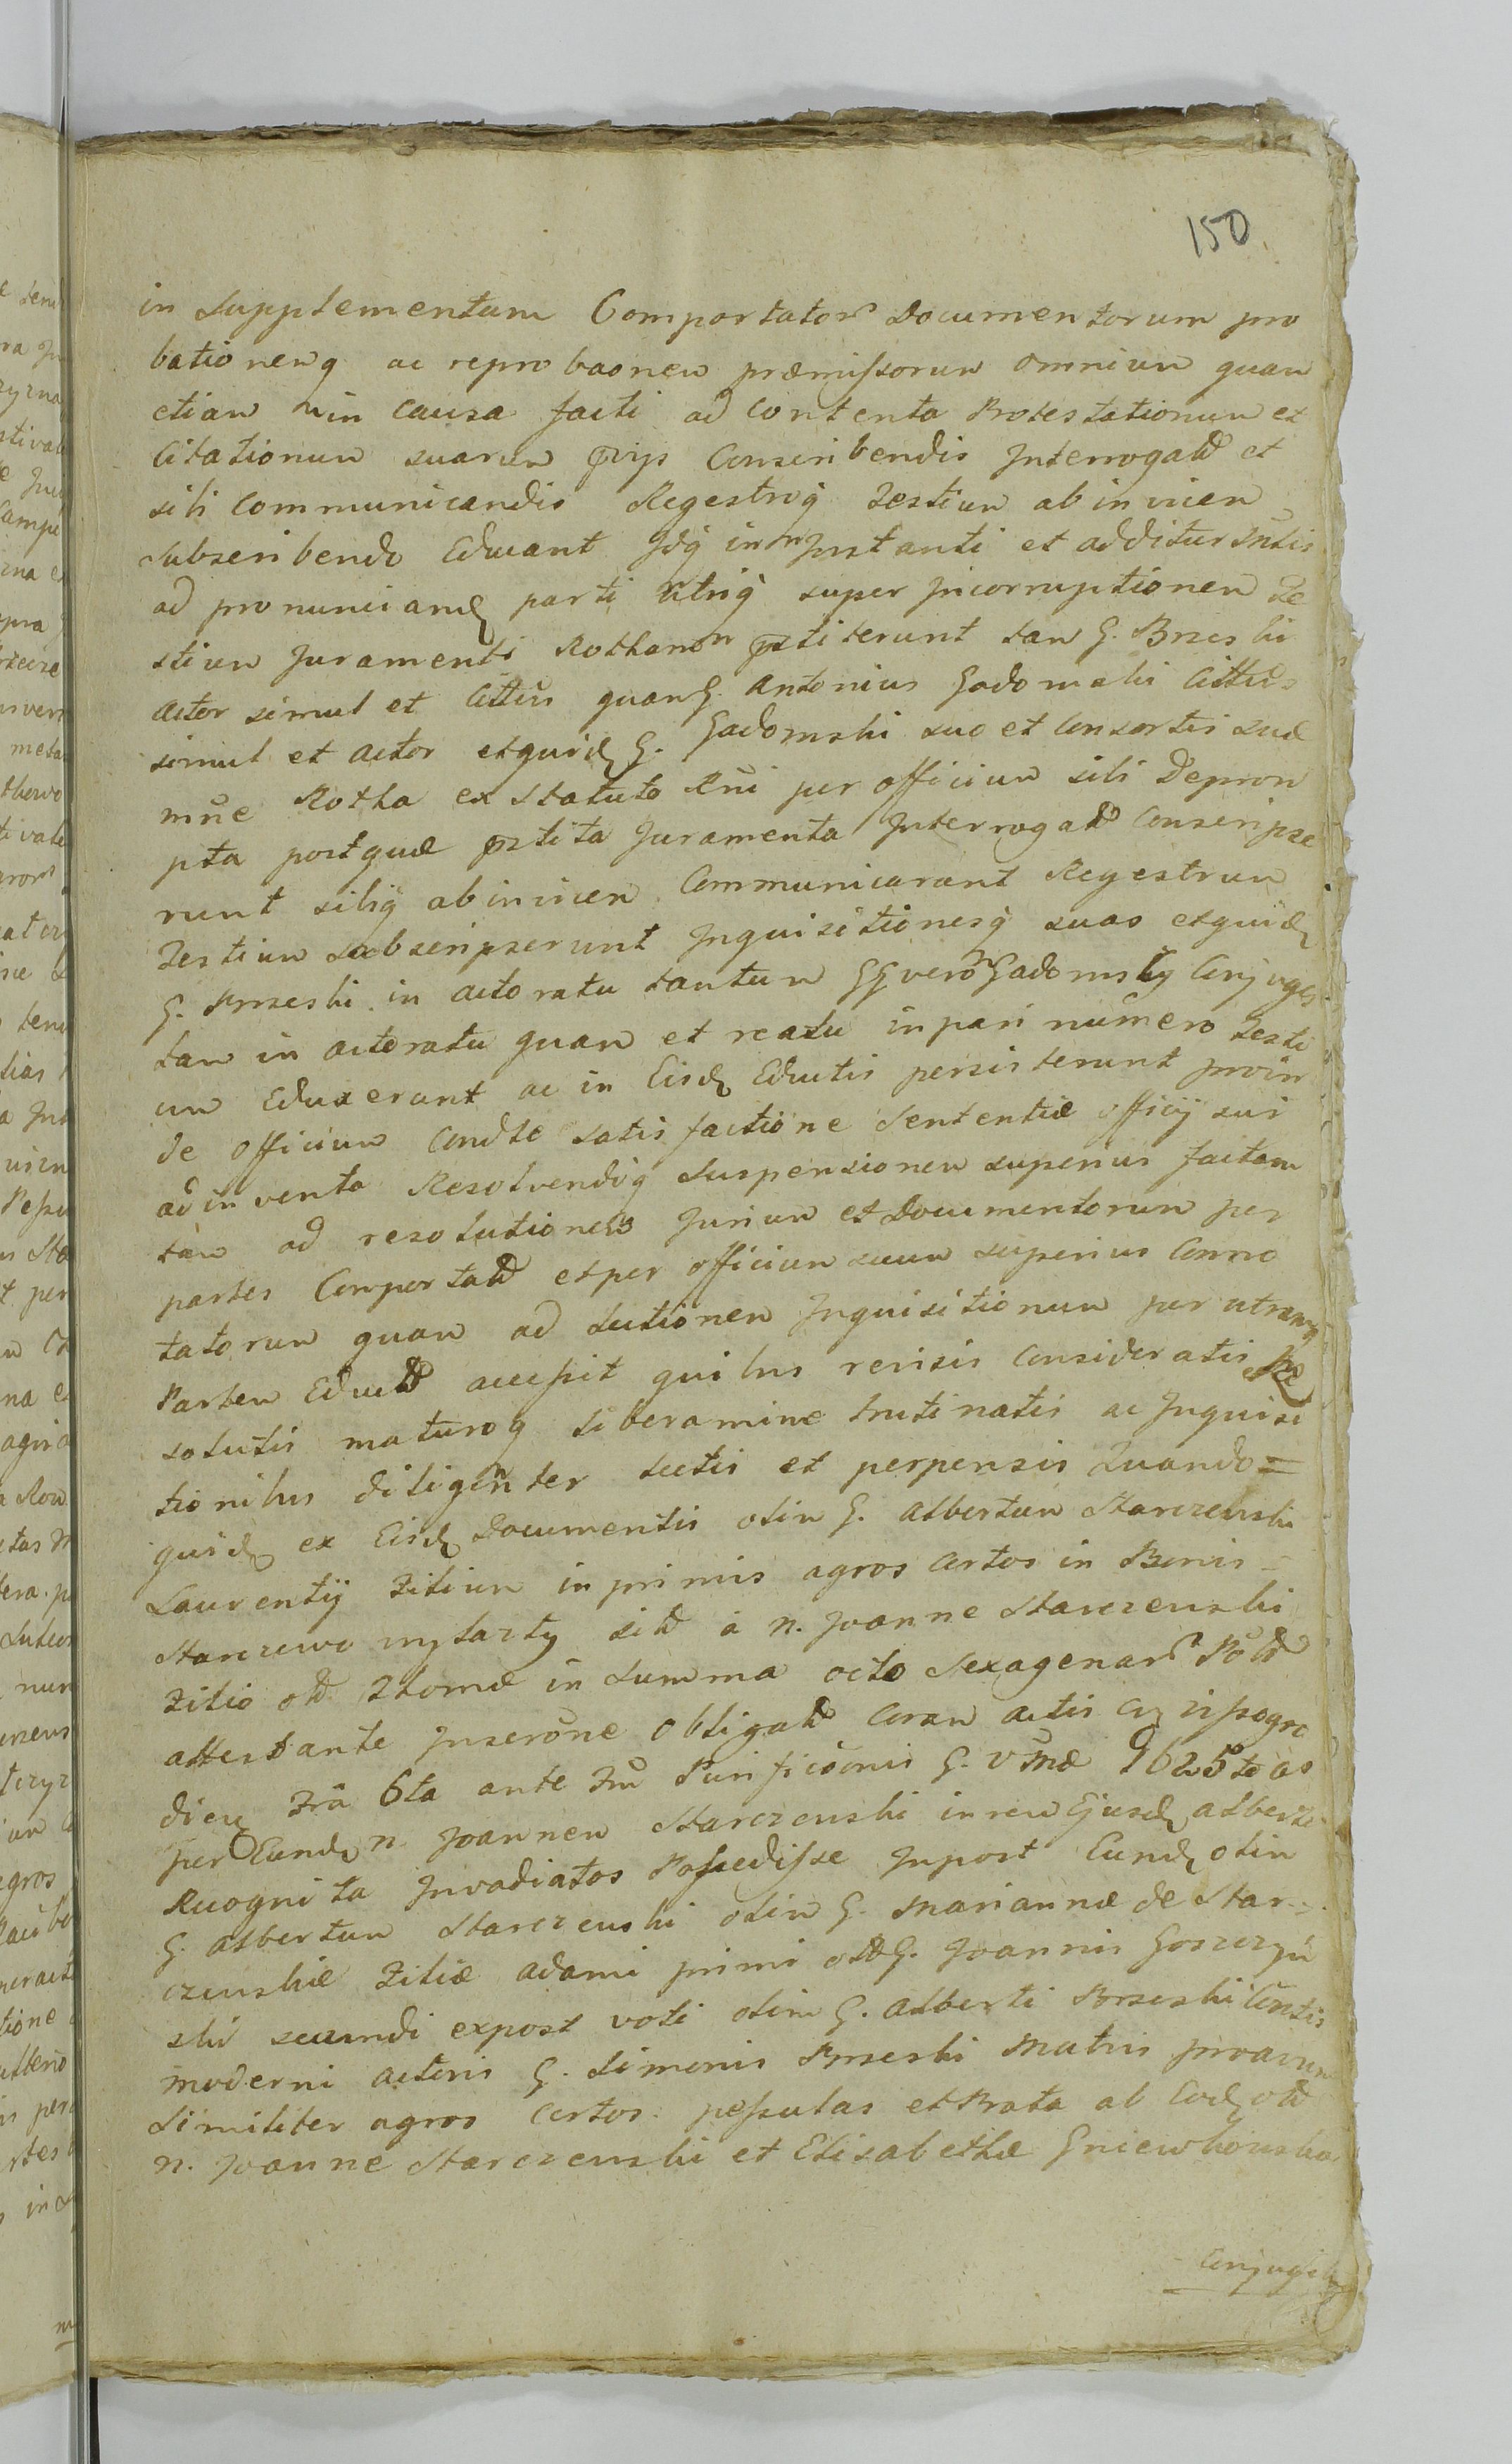 150
in Supplementum Comportator Documentorum pro
bationemq ac reprobaonem præmissorum omnium quam
etiam in causa facti ad contenta Protestationum et
Citationum suarum Conscribendis Interrogat et
sibi Communicandis Regestroq Testium ab invicem
Subscribendo Educant Idq in instanti et additur
ad pronunciand parti utriq super Incorruptionem Te
stium Juramenti Rotham pstiterunt tam G. Brzeski
Actor simul et Cittus quam G. Antonius Gadomski Cittus
simul et Actor etquid G. Gadomski suo et Consortis suæ
mne Rotha ex Statuto Rni per officium sibi Deprom
pta postquæ pstita Juramenta Interrogat Conscripse
runt sibiq ab invicem Communicarunt Regestrum
Testium Subscripserunt Inquisitionesq suas etquid
G. Brzeski in actoratu tantum GG vero Gadomsky Conjuges
tam in actoratu quam et reatu in pari numero Testi
um Eduxerunt ac in Eisd Eductis perstiterunt proin
de officium Condte satisfactione Sententiæ officij sui
ad inventa Resolvendoq Suspensionem superius factam
tam ad resolutionem Jurium et Documentorum per
partes Comportat et per officium suum superius Conno
tatorum quam ad Lectionem Inquisitionum per utramq
Partem Educt accessit quibus revisis Consideratis Re
solutis maturoq liberamine trutinatis ac Inquisi
tionibus diligenter lectis et perpensis Quando=
quid ex Eisd Documentis olim G. Albertum Starczewski
Laurentij Filium inprimis agros Certos in Bonis
Starczewo wytarty sit à N. Joanne Starczewski
Filio ol Thomæ in Summa octo Sexagenar Pol
attestante Inserone Obligat Coram actis
die Fra 6ta ante Fm Purificaonis G. V Mæ 1625to ao
per Eund N Joannem Starczewski in rem Ejusd Alberti
Recognita Invadiatos Possedisse Inpost Eund olim
G. Albertum Starczewski olim G. Mariannæ de Star=
czewskie Filiæ Adami primi ol G. Joannis Goszczyń
ski secundi expost voti olim G. Alberti Brzeski Contis
moderni actoris G. Simonis Brzeski Matris proavum
Similiter agros Certos pessulas et Prata ab Eod ol
N. Joanne Starczewski et Elisabethæ Gniewkowska
Conjugib